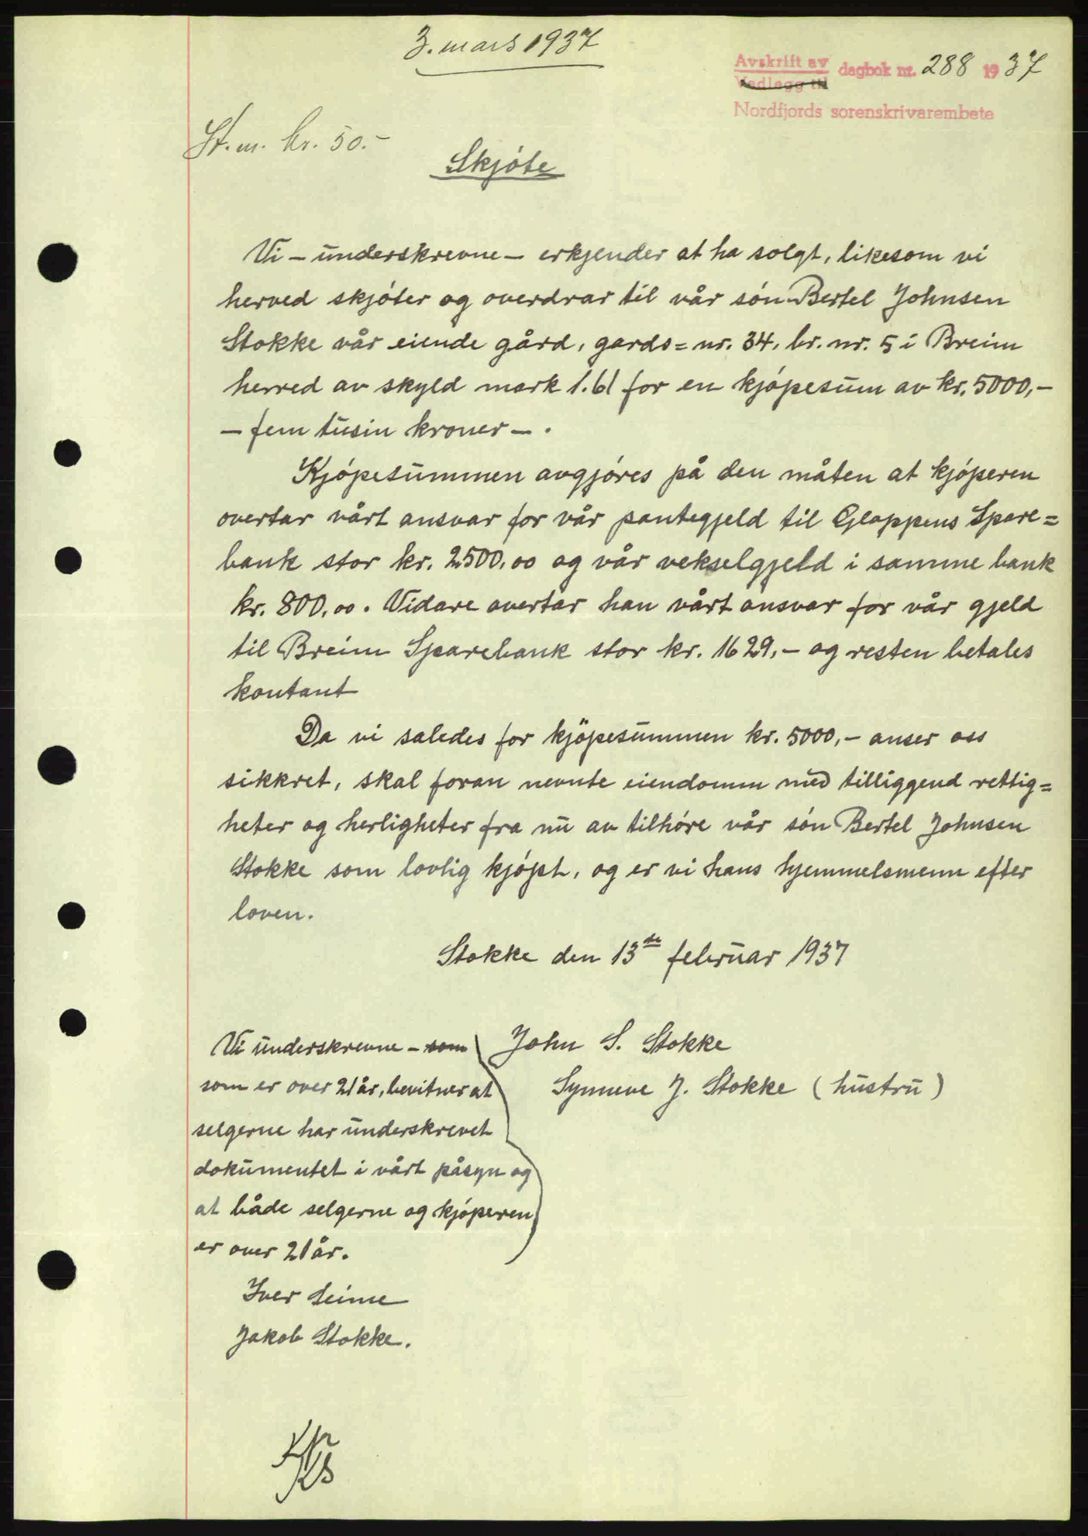 3. mars 1937
Avskrift av
Vedlegg til
dagbok nr. 288 1937
Nordfjords sorenskrivarembete
St.m. kr. 50.-
Skjóte
Vi - underskrevne - erkjender at ha solgt, likesom vi
herved skjóter og overdrar til vår són Bertel Johnsen
Stokke vår eiende gård, gards= nr. 34, br. nr. 5 i Breim
herred av skyld mark 1.61 for en kjópesum av kr. 5000,-
- fem tusin kroner - .
Kjópesummen avgjóres på den måten at kjóperen
overtar vårt ansvar for vår pantegjeld til Gloppens Spare=
bank stor kr. 2500,00 og vår vekselgjeld i samme bank
kr. 800,00. Vidare overtar han vårt ansvar for vår gjeld
til Breim Sparebank stor kr. 1629,- og resten betales
kontant
Da vi saledes for kjöpesummen kr. 5000,- anser oss
sikkret, skal foran nevnte eiendomm med tilliggend rettig=
heter og herligheter fra nu av tilhóre vår són Bertel Johnsen
Stokke som lovlig kjópt, og er vi hans hjemmelsmenn efter
loven.
Stokke den 13de februar 1937
John S. Stokke
Synneve J. Stokke (hustru)
Vi underskrevne - som
som er over 21 år, bevitner at
selgerne har underskrevet
dokumentet i vårt påsyn og
at både selgerne og kjóperen
er over 21 år.
Iver Seime
Jakob Stokke.